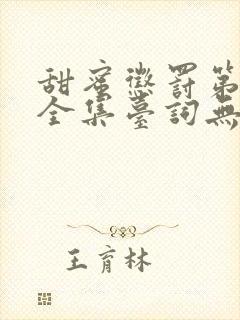 甜蜜懲罰第
全集臺詞無
王育林